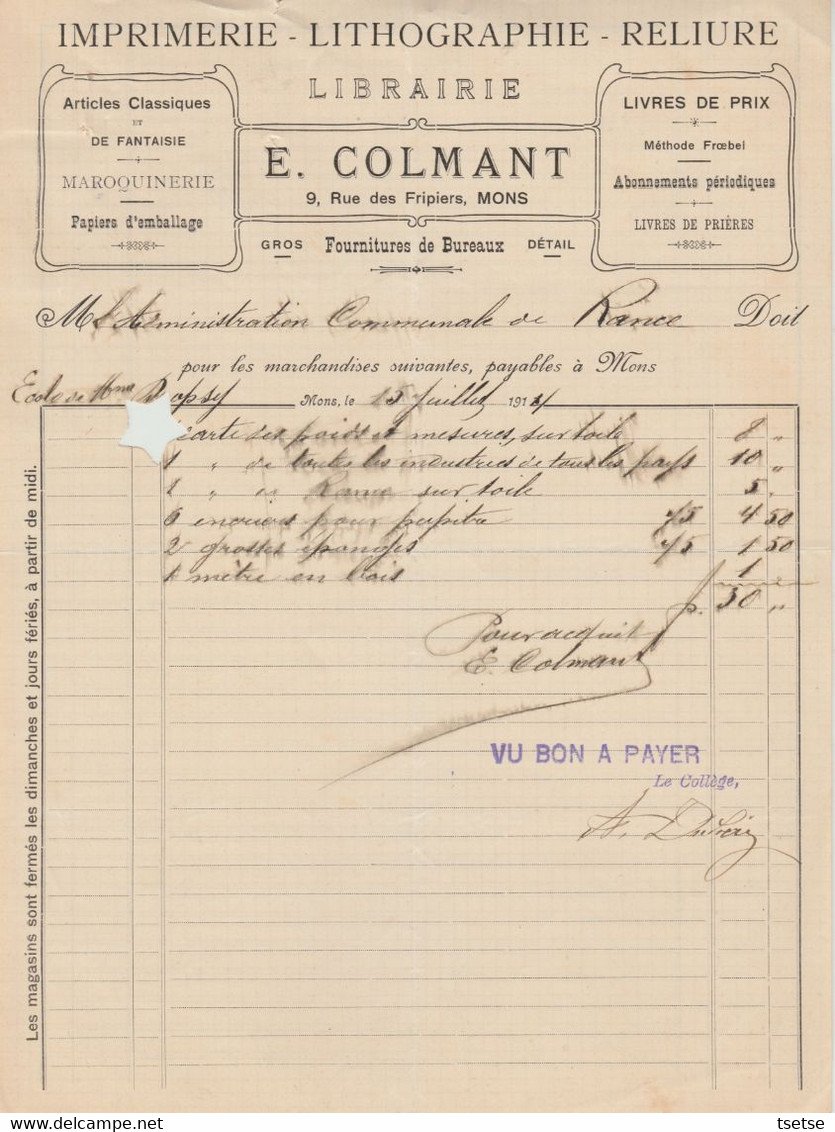 IMPRIMERIE - LITHOGRAPHIE - RELIURE
LIBRAIRIE
Articles Classiques
ET
DE FANTAISIE
MAROQUINERIE
Papiers d'emballage
E. COLMANT
9, Rue des Fripiers, MONS
GROS Fournitures de Bureaux DÉTAIL
LIVRES DE PRIX
Méthode Frœbel
Abonnements périodiques
LIVRES DE PRIÈRES
M L'Administration Communale de Rance Doit
pour les marchandises suivantes, payables à Mons
Ecole de Mme Dopsy
Mons, le 15 Juillet 1914
carte des poids et mesures, sur toile 8 "
1 " de toutes les industries de tous les pays 10 "
1 " de Rance sur toile 5 "
6 encriers pour pupitre 75 4 50
2 grosses éponges 75 1 50
1 mètre en bois 1
fr. 30 "
Pour acquit
E. Colmant
VU BON A PAYER
Le Collège,
Les magasins sont fermés les dimanches et jours fériés, à partir de midi.
delcampe.net
tsetse